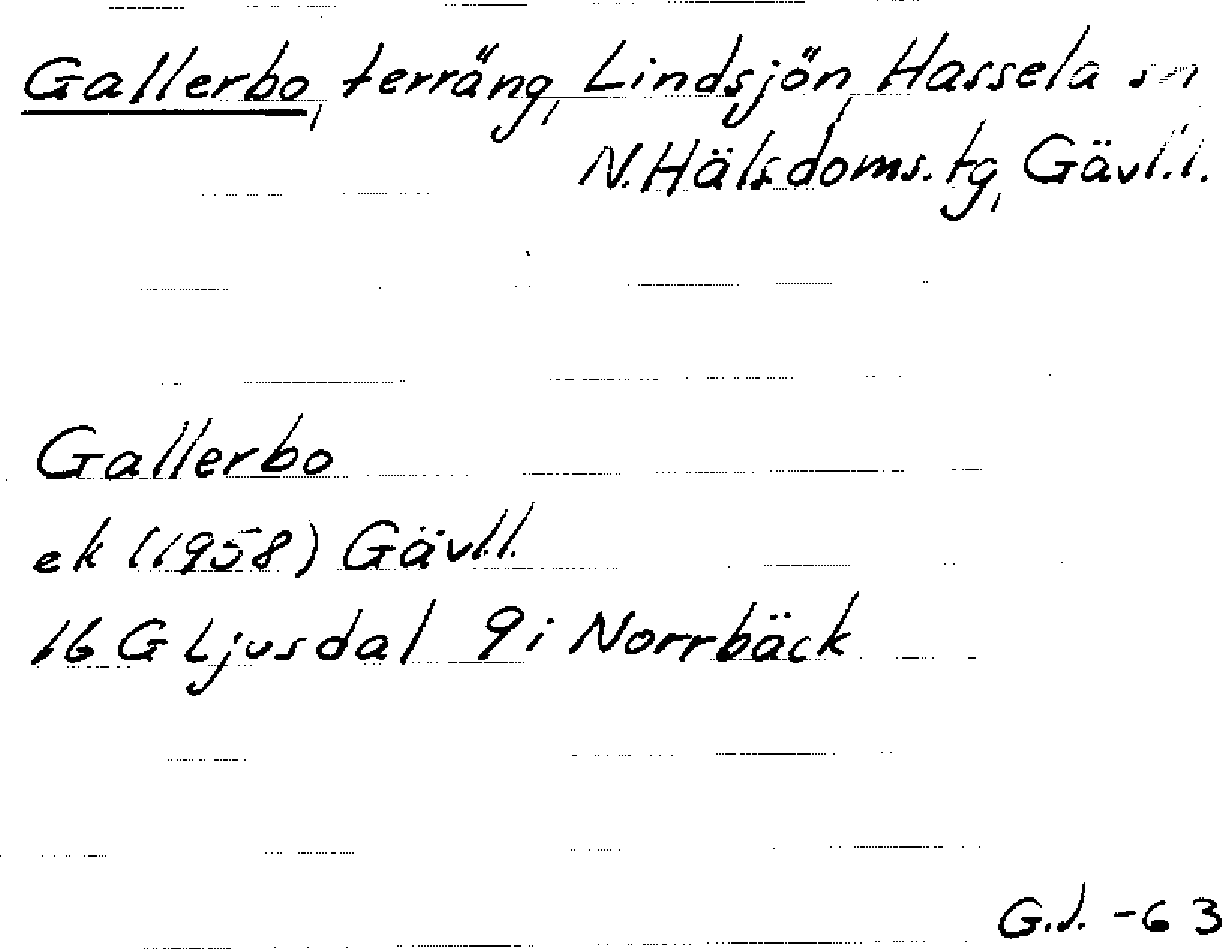 Gallerbo, terräng, Lindsjön, Hassela sn
N. Häls. doms. tg, Gävl. l.
Gallerbo
ek (1958) Gävl. l.
16 G Ljusdal 9 i Norrbäck
G.J. -63